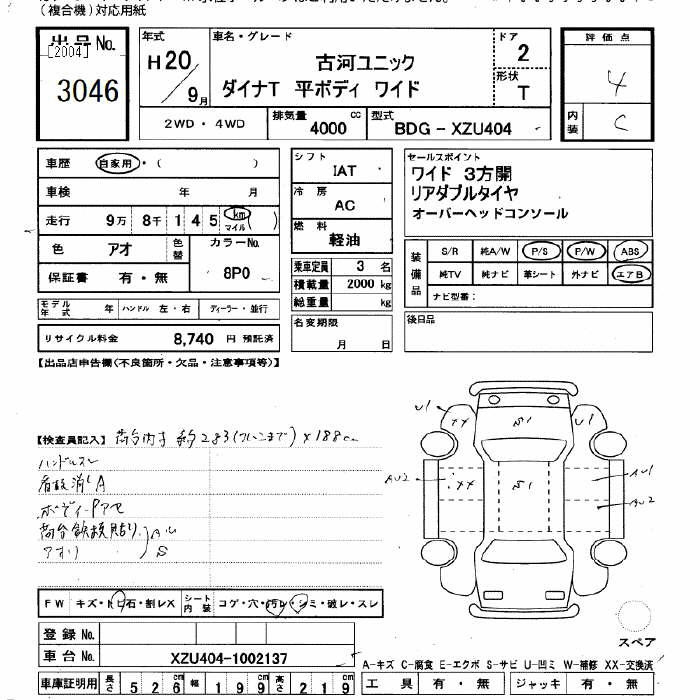 (複合機)対応用紙
出品No.
[2004]
3046
年式 H20/9月
車名・グレード
古河ユニック
ダイナT 平ボディ ワイド
ドア 2
形状 T
2WD・4WD
排気量 4000 cc
型式 BDG-XZU404
評価点 4
内装 C
車歴 自家用・( )
車検 年 月
走行 9万 8千 1 4 5 km マイル ( )
色 アオ
色替
カラーNo. 8P0
保証書 有・無
モデル年式 年
ハンドル 左・右
ディーラー・並行
リサイクル料金 8,740 円 預託済
シフト IAT
冷房 AC
燃料 軽油
乗車定員 3 名
積載量 2000 kg
総重量 kg
名変期限 月 日
セールスポイント
ワイド 3方開
リアダブルタイヤ
オーバーヘッドコンソール
装備品
S/R 純A/W P/S P/W ABS
純TV 純ナビ 革シート 外ナビ エアB
ナビ型番:
後日品
【出品店申告欄(不良箇所・欠品・注意事項等)】
【検査員記入】
ハンドルスレ
ボディーPアセ
アオリ
S
U1
XX
S1
U1
AU2
XX
S1
AU1
AU2
FW キズ・トビ石・割レX
シート内装 コゲ・穴・汚レ・シミ・破レ・スレ
登録No.
車台No. XZU404-1002137
車庫証明用 長さ 526cm 幅 199cm 高さ 219cm
スペア
A-キズ C-腐食 E-エクボ S-サビ U-凹ミ W-補修 XX-交換済
工具 有・無 ジャッキ 有・無